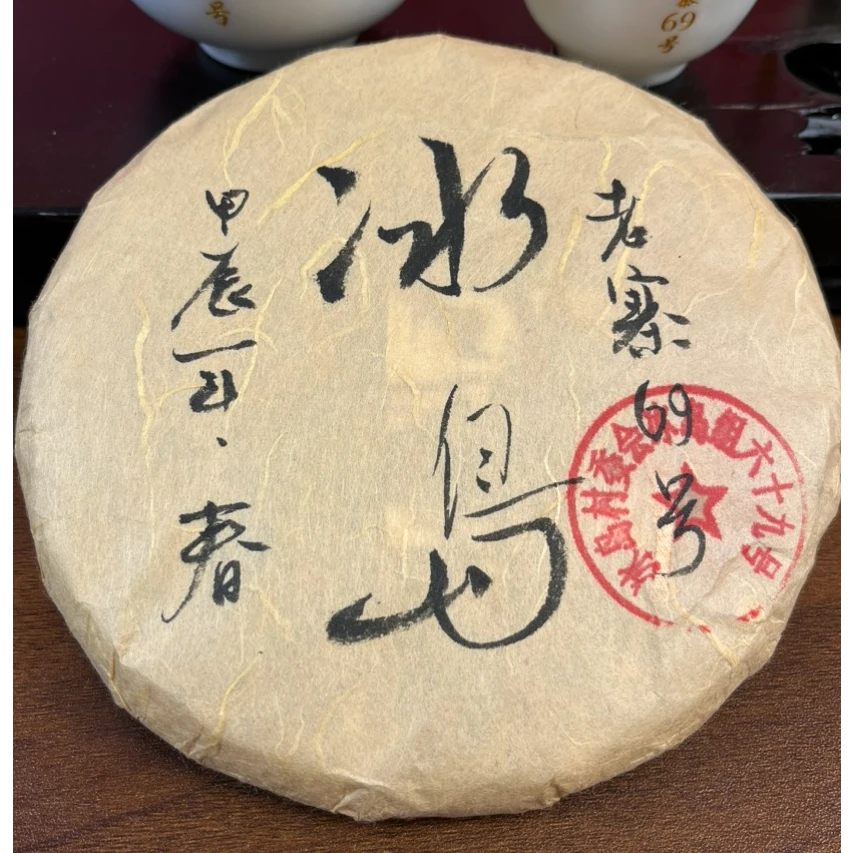 老寨69号
冰島
甲辰年·春
冰島村委会冰島组六十九号
号
寨69号